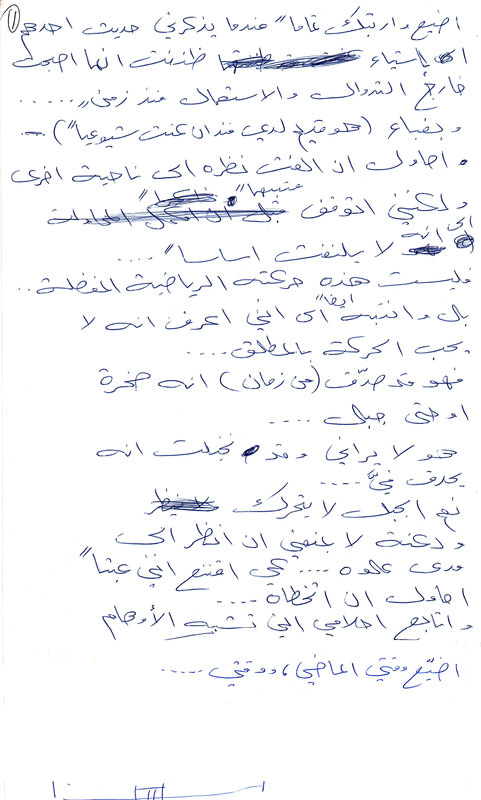 ١
اضيع وارتبك تماماً عندما يذكرني حديث احدهم
باشياء ظننت انها اصبحت
خارج التداول والاستعمال منذ زمن .....
وبغباء (هو قديم لدي منذ ان كنت شيوعياً) -
احاول ان الفت نظره الى ناحية اخرى
ولكنني اتوقف متنبهاً
الى انه لا يلتفت اساساً ....
فليست هذه حركته الرياضية المفضلة ..
بل وانتبه ايضاً الى انني اعرف انه لا
يحب الحركة بالمطلق ....
فهو قد صدّق (من زمان) انه صخرة
او حتى جبل ....
هو لا يراني وقد تخيلت انه
يحدق فيّ ....
نعم الجبل لا يتحرك
ولكنه لا يمنعني ان انظر الى
مدى علوه .... كي اقتنع انني عبثاً
احاول ان اتخطاه ....
واتابع احلامي التي تشبه الأوهام
اضيّع وقتي الماضي، ووقتي .....